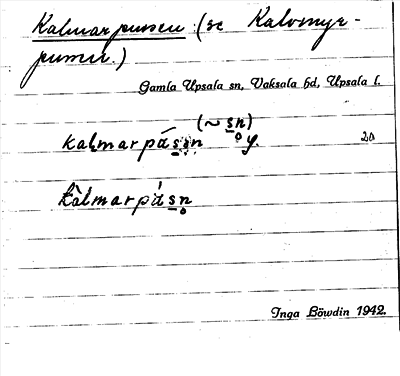 Kalmarpussen (se Kalvmyr-
pussen.)
Gamla Upsala sn, Vaksala hd, Upsala l.
(~ sn)
kalmarpássn y. 20
kàlmarpásn
Inga Böwdin 1942.